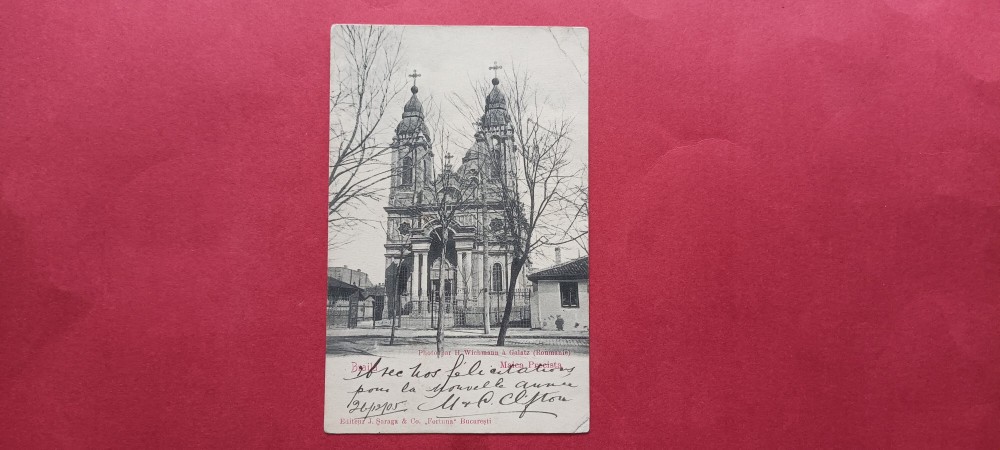 Photo par H. Wichmann à Galatz (Roumanie)
Braila Maica Precista
Avec nos félicitations
pour la nouvelle année
26/12/05. M & P. Clifton
Editeur J. Saraga & Co. „Fortuna" Bucureşti